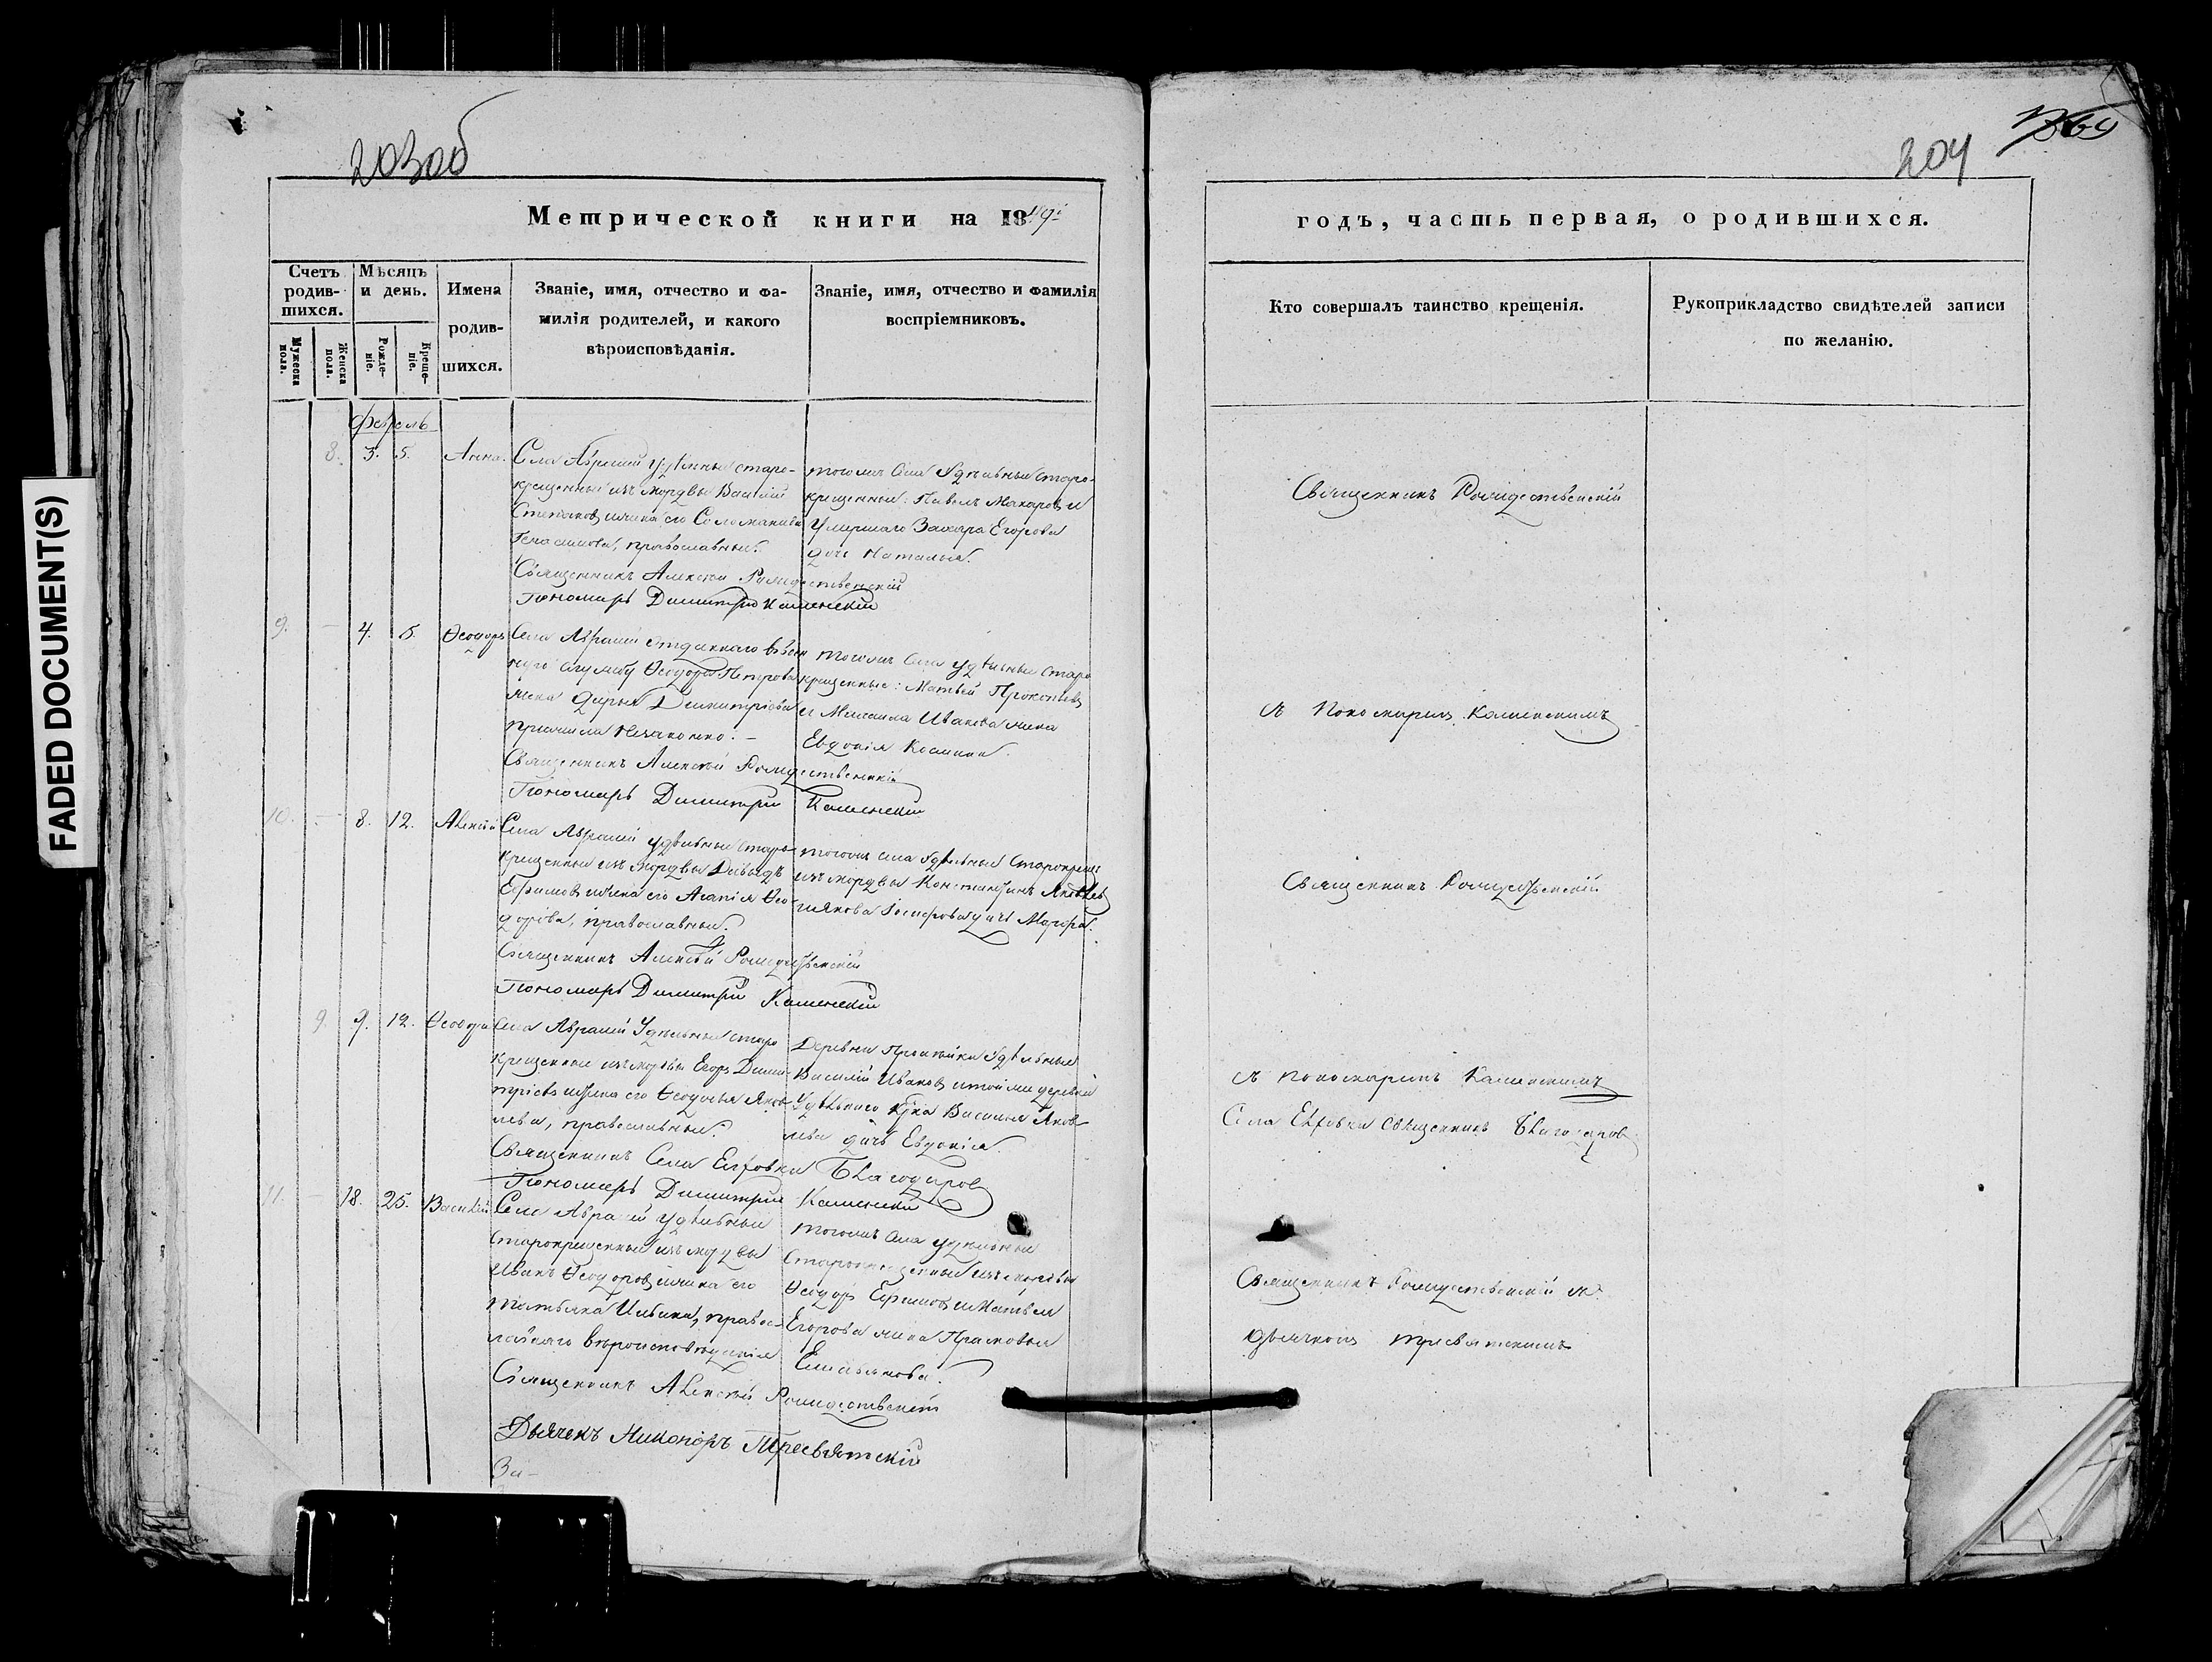 FADED DOCUMENT(S)
203об
204
Метрической книги на 1849й
годъ, часть первая, о родившихся.
Счетъ родив-шихся.
Мужеска пола.
Женска пола.
Мѣсяцъ и день.
Рожде-ніе.
Креще-ніе.
Имена родив-шихся.
Званіе, имя, отчество и фа-
милія родителей, и какого
вѣроисповѣданія.
Званіе, имя, отчество и фамилія
воспріемниковъ.
Кто совершалъ таинство крещенія.
Рукоприкладство свидѣтелей записи
по желанію.
8. 3. 5. Анна.
Села Аврамей удѣльный старо-
крещенный изъ мордвы Василій
Степановъ и жена его Соломанида
православные.
Священникъ Алексій Рождественскій
Пономарь Димитрій Каменскій
тогожъ села удѣльный старо-
крещенный: Павелъ Макаровъ и
умершаго Захара Егорова
дочь Наталья.
Священникъ Рождественскій
9. — 4. 5. Ѳеодоръ
Села Аврамей отданнаго въ воен
ную службу Ѳеодора Петрова
жена Дарья Димитріева
прижила незаконно. —
Священникъ Алексій Рождественскій
Пономарь Димитрій Каменскій
тогожъ села удѣльные старо
крещенные: Матвей Прокопьевъ
и Михаила Иванова жена
Евдокія Косьмина
съ Пономаремъ Каменскимъ
10. — 8. 12. Алексій
Села Аврамей удѣльный старо-
крещенный изъ мордвы Давыдъ
Ефимовъ и жена его Агапія Ѳео
дорова, православные.
Священникъ Алексій Рождественскій
Пономарь Димитрій Каменскій
тогожъ села удѣльный старокрещ:
изъ мордвы Константинъ Яковлевъ
дочь Марфа.
Священникъ Рождественскій
9. 9. 12.
Села Аврамей Удѣльный старо
крещенный изъ мордвы Егоръ Дими-
тріевъ и жена его Ѳеодосья Яков-
лева, православные.
Священникъ Села Благодаровъ
Пономарь Димитрій Каменскій
Деревни удѣльный
Василій Ивановъ и тойже деревни
Удѣльнаго Василья Яков
лева дочь Евдокія.
съ пономаремъ Каменскимъ
Села священникъ Благодаровъ
11. — 18. 25. Василій
Села Аврамей удѣльный
старокрещенный изъ мордвы
Иванъ Ѳеодоровъ и жена его
Татьяна Ильина, правос-
лавнаго вѣроисповѣданія
Священникъ Алексій Рождественскій
Дьячекъ Никоноръ Пресвятскій
За-
тогожъ села удѣльный
старокрещенный изъ мордвы
Ѳеодоръ Ефимовъ и Матвея
Егорова жена Прасковья
Емельянова.
Священникъ Рождественскій съ
дьячкомъ Пресвятскимъ